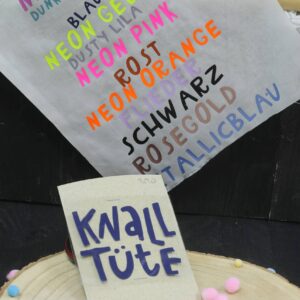 DUNK
BLAU
NEON GEL
DUSTY LILA
NEON PINK
ROST
NEON ORANGE
FLIEDER
SCHWARZ
ROSEGOLD
TALLICBLAU
KNALL
TÜTE